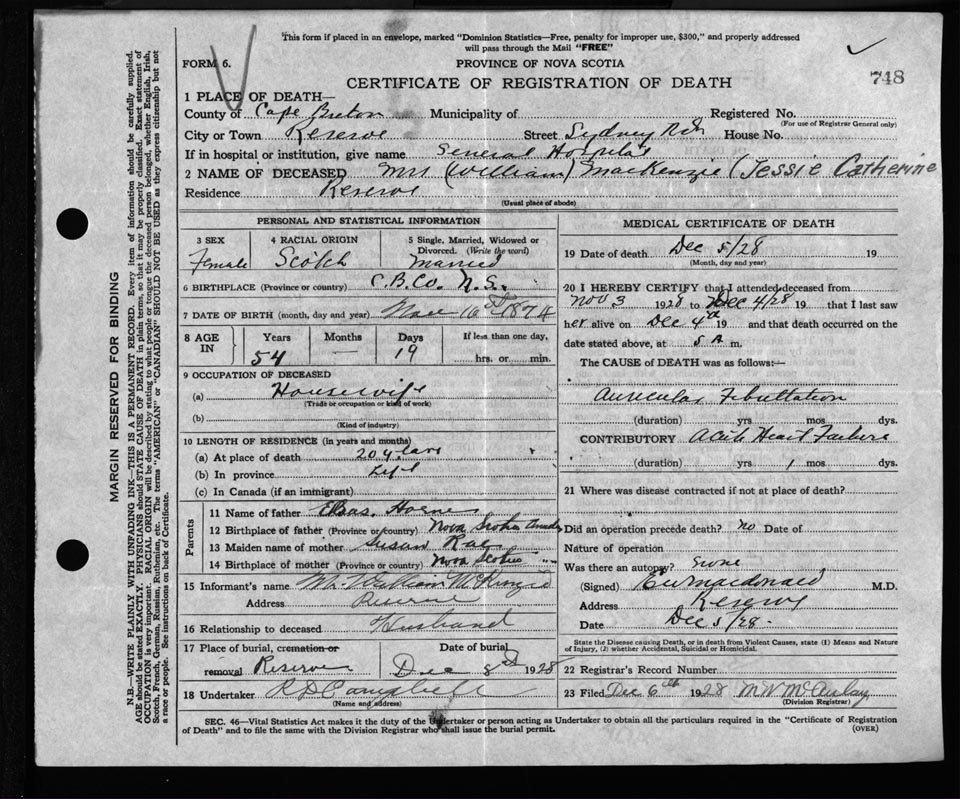 This form if placed in an envelope, marked "Dominion Statistics—Free, penalty for improper use, $300," and properly addressed
will pass through the Mail "FREE"
FORM 6. PROVINCE OF NOVA SCOTIA
748
CERTIFICATE OF REGISTRATION OF DEATH
1 PLACE OF DEATH—
County of Cape Breton Municipality of Registered No.
(For use of Registrar General only)
City or Town Reserve Street Sydney House No.
If in hospital or institution, give name General Hospital
2 NAME OF DECEASED Mrs (William) MacKenzie (Jessie Catherine
Residence Reserve
(Usual place of abode)
PERSONAL AND STATISTICAL INFORMATION
3 SEX 4 RACIAL ORIGIN 5 Single, Married, Widowed or
Divorced. (Write the word)
Female Scotch Married
6 BIRTHPLACE (Province or country) C.B.Co. N.S.
7 DATE OF BIRTH (month, day and year) 16 1874
8 AGE IN Years Months Days If less than one day,
54 — 19 hrs. or min.
9 OCCUPATION OF DECEASED
(a) Housewife
(Trade or occupation or kind of work)
(b)
(Kind of industry)
10 LENGTH OF RESIDENCE (in years and months)
(a) At place of death 20 years
(b) In province Life
(c) In Canada (if an immigrant)
Parents
11 Name of father Horne
12 Birthplace of father (Province or country) Nova Scotia
13 Maiden name of mother Susan Rae
14 Birthplace of mother (Province or country) Nova Scotia
15 Informant's name Mr. William McKenzie
Address Reserve
16 Relationship to deceased Husband
17 Place of burial, cremation or Date of burial
removal Reserve Dec 8 1928
18 Undertaker R D Campbell
(Name and address)
MEDICAL CERTIFICATE OF DEATH
19 Date of death Dec 5/28 19
(Month, day and year)
20 I HEREBY CERTIFY that I attended deceased from
Nov 3 1928 to Dec 4/28 19 that I last saw
her alive on Dec 4th 19 and that death occurred on the
date stated above, at 5 A m.
The CAUSE of DEATH was as follows:—
Auricular Fibrillation
(duration) yrs mos dys.
CONTRIBUTORY Acute Heart Failure
(duration) yrs 1 mos dys.
21 Where was disease contracted if not at place of death?
Did an operation precede death? no Date of
Nature of operation
Was there an autopsy? None
(Signed) Macdonald M.D.
Address Reserve
Date Dec 5/28.
State the Disease causing Death, or in death from Violent Causes, state (1) Means and Nature
of Injury, (2) whether Accidental, Suicidal or Homicidal.
22 Registrar's Record Number
23 Filed Dec 6th 1928
(Division Registrar)
SEC. 46—Vital Statistics Act makes it the duty of the Undertaker or person acting as Undertaker to obtain all the particulars required in the "Certificate of Registration
of Death" and to file the same with the Division Registrar who shall issue the burial permit. (OVER)
MARGIN RESERVED FOR BINDING
N.B.—WRITE PLAINLY WITH UNFADING INK—THIS IS A PERMANENT RECORD. Every item of information should be carefully supplied.
AGE should be stated EXACTLY. PHYSICIANS should STATE CAUSE OF DEATH in plain terms, so that it may be properly classified. Exact statement of
OCCUPATION is very important. RACIAL ORIGIN will be described by stating to what people or tongue the deceased person belonged, whether English, Irish,
Scotch, French, German, Russian, Ruthenian, etc. The terms "AMERICAN" or "CANADIAN" SHOULD NOT BE USED as they express citizenship but not
a race or people. See instructions on back of Certificate.